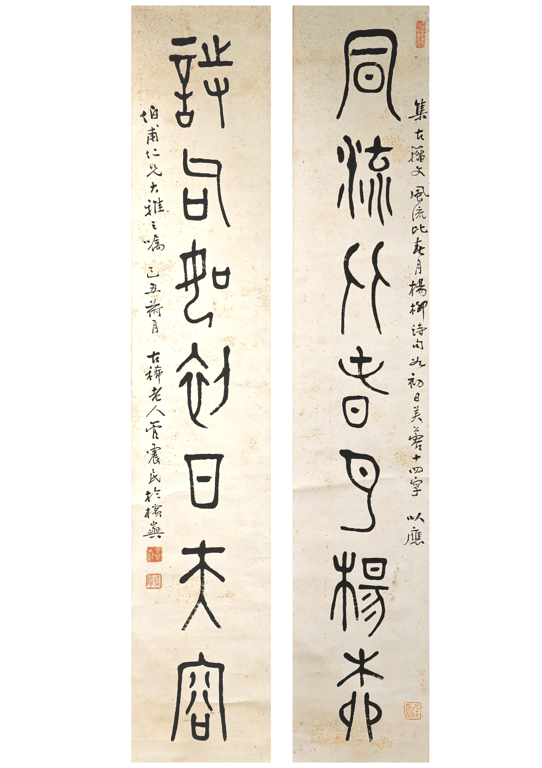 集古籀文 風流比春月楊柳詩句如初日芙蓉十四字 以應
風流比春月楊柳
詩句如初日芙蓉
伯甫仁兄大雅之囑 己丑荷月 古稀老人管震民於檳嶼